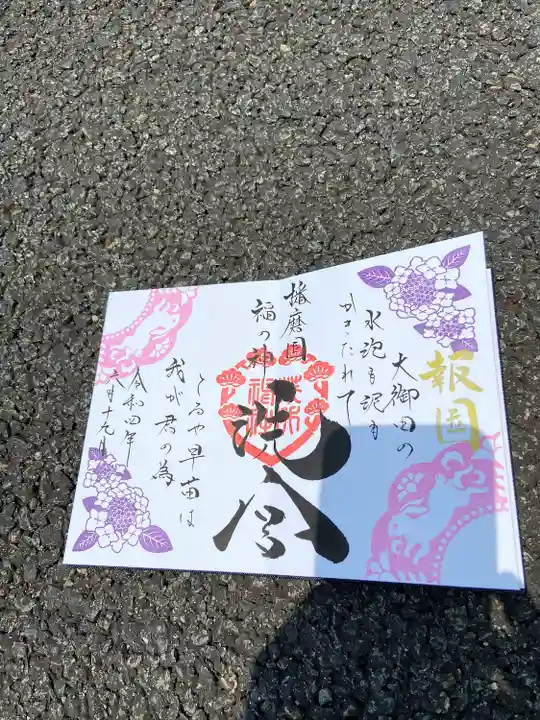 報国
大御田の
水泥も泥も
かきたれて
播磨国
福の神
とるや早苗は
我が君の為
令和四年
六月十九日